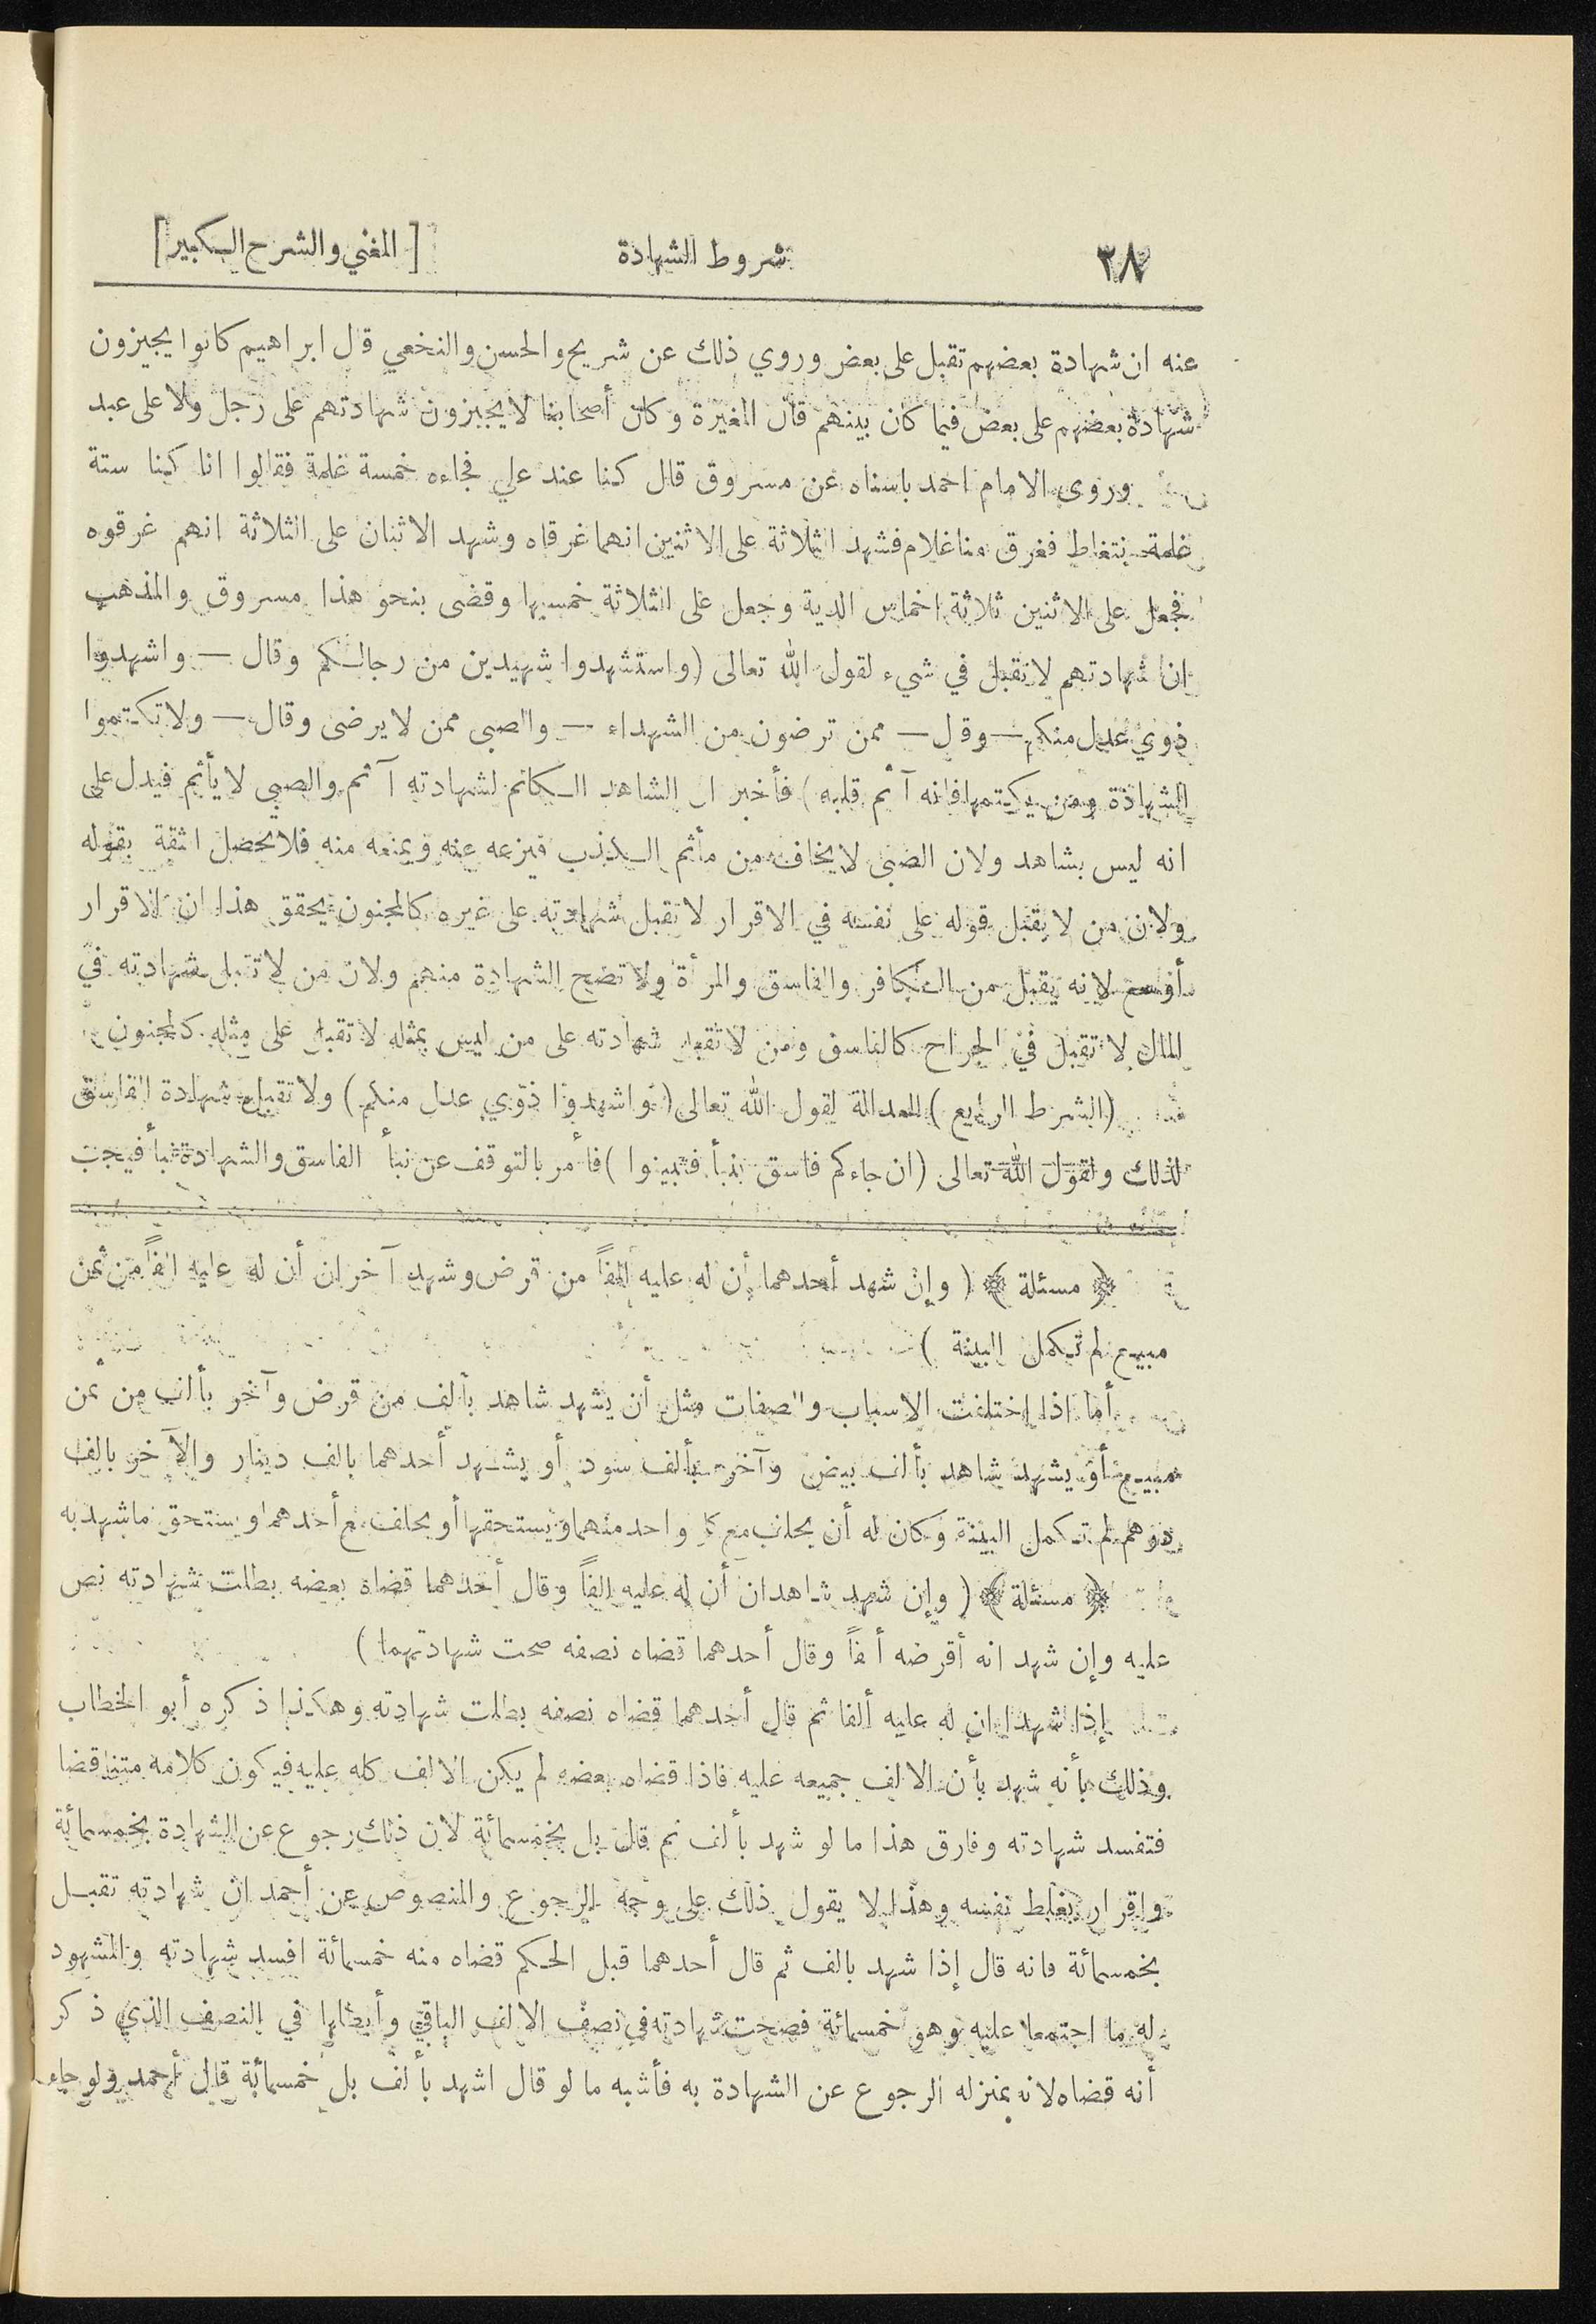 ٢٨ شروط الشهادة [ المغني والشرح الكبير ]
عنه ان شهادة بعضهم تقبل على بعض وروي ذلك عن شريح والحسن والنخعي قال ابراهيم كانوا يجيزون
شهادة بعضهم على بعض فيما كان بينهم قال المغيرة وكان أصحابنا لا يجيزون شهادتهم على رجل ولا على عبد
وروى الامام احمد باسناه عن مسروق قال كنا عند علي فجاءه خمسة غلمة فقالوا انا كنا ستة
غلمة نتغاط فغرق منا غلام فشهد الثلاثة على الاثنين انهما غرقاه وشهد الاثنان على الثلاثة انهم غرقوه
فجعل على الاثنين ثلاثة اخماس الدية وجعل على الثلاثة خمسيها وقضى بنحو هذا مسروق والمذهب
ان شهادتهم لا تقبل في شيء لقول الله تعالى (واستشهدوا شهيدين من رجالكم وقال — واشهدوا
ذوي عدل منكم — وقل — ممن ترضون من الشهداء — والصبي ممن لا يرضى وقال — ولا تكتموا
الشهادة ومن يكتمها فانه آثم قلبه) فأخبر ان الشاهد الكاتم لشهادته آثم والصبي لا يأثم فيدل على
انه ليس بشاهد ولان الصبي لا يخاف من مأثم الكذب فيزعه عنه ويمنعه منه فلا يحصل الثقة بقوله
ولان من لا يقبل قوله على نفسه في الاقرار لا تقبل شهادته على غيره كالمجنون يحقق هذا ان الاقرار
أوسع لانه يقبل من الكافر والفاسق والمرأة ولا تصح الشهادة منهم ولان من لا تقبل شهادته في
المال لا تقبل في الجراح كالفاسق ومن لا تقبل شهادته على من ليس بمثله لا تقبل على مثله كالمجنون
(الشرط الرابع) العدالة لقول الله تعالى (واشهدوا ذوي عدل منكم) ولا تقبل شهادة الفاسق
لذلك ولقول الله تعالى (ان جاءكم فاسق بنبأ فتبينوا) فأمر بالتوقف عن نبأ الفاسق والشهادة نبأ فيجب
﴿ مسئلة ﴾ ( وإن شهد أحدهما أن له عليه الفاً من قرض وشهد آخر ان أن له عليه الفاً من ثمن
مبيع لم تكمل البينة )
أما اذا اختلفت الاسباب والصفات مثل أن يشهد شاهد بألف من قرض وآخر بألف من ثمن
مبيع أو يشهد شاهد بألف بيض وآخر بألف سود أو يشهد أحدهما بالف دينار والآخر بالف
درهم لم تكمل البينة وكان له أن يحلف مع كل واحد منهما ويستحقها أو يحلف مع أحدهما ويستحق ما شهد به
﴿ مسئلة ﴾ ( وإن شهد شاهدان أن له عليه الفاً وقال أحدهما قضاه بعضه بطلت شهادته نص
عليه وإن شهد انه أقرضه أ فاً وقال أحدهما قضاه نصفه صحت شهادتهما )
إذا شهدا ان له عليه ألفا ثم قال أحدهما قضاه نصفه بطلت شهادته وهكذا ذكره أبو الخطاب
وذلك بأنه شهد بأن الالف جميعه عليه فاذا قضاه بعضه لم يكن الالف كله عليه فيكون كلامه متناقضا
فتفسد شهادته وفارق هذا ما لو شهد بألف ثم قال بل بخمسمائة لان ذلك رجوع عن الشهادة بخمسمائة
واقرار بغلط نفسه وهذا لا يقول ذلك على وجه الرجوع والمنصوص عن أحمد ان شهادته تقبل
بخمسمائة فانه قال إذا شهد بالف ثم قال أحدهما قبل الحكم قضاه منه خمسمائة افسد شهادته والمشهود
له ما اجتمعا عليه وهو خمسمائة فصحت شهادته في نصف الالف الباقي وأبطلها في النصف الذي ذكر
أنه قضاه لانه بمنزله الرجوع عن الشهادة به فأشبه ما لو قال اشهد بألف بل خمسمائة قال أحمد ولو جاء